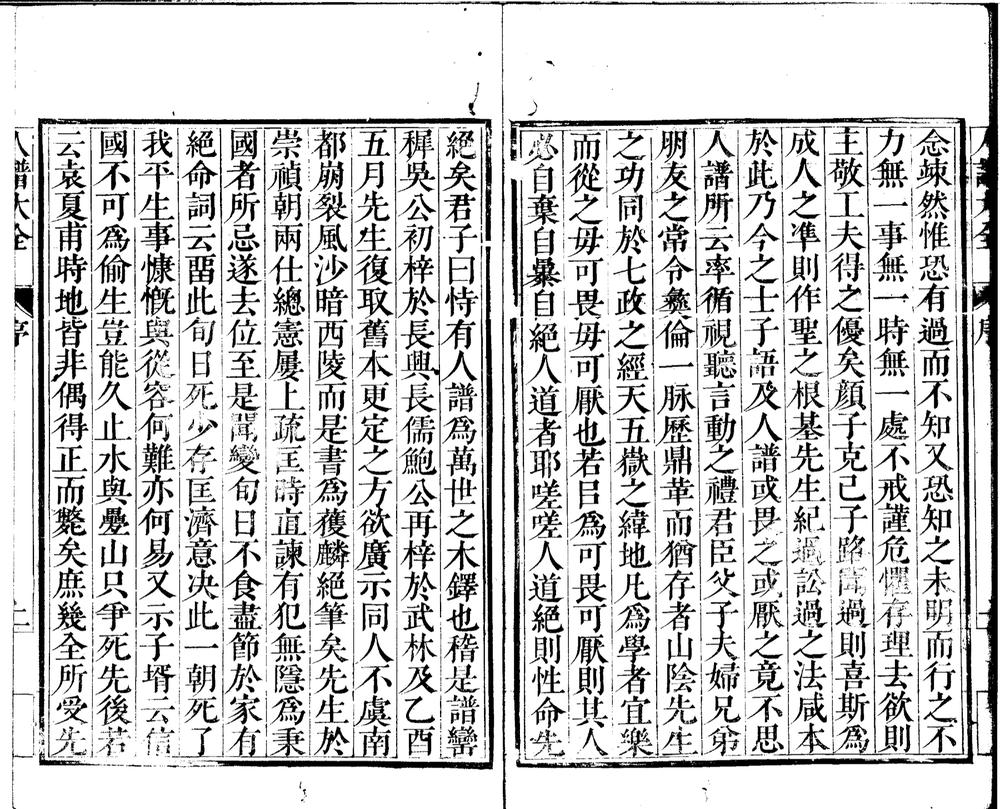 念竦然惟恐有過而不知又恐知之未明而行之不
力無一事無一時無一處不戒謹危懼存理去欲則
主敬工夫得之優矣顔子克己子路聞過則喜斯爲
成人之凖則作聖之根基先生紀過訟過之法咸本
於此乃今之士子語及人譜或畏之或厭之竟不思
人譜所云率循視聽言動之禮君臣父子夫婦兄弟
朋友之常令彝倫一脉歷鼎革而猶存者山陰先生
之功同於七政之經天五嶽之緯地凡爲學者宜樂
而從之毋可畏毋可厭也若㠯爲可畏可厭則其人
必自棄自暴自絕人道者耶嗟嗟人道絕則性命先
絕矣君子曰恃有人譜爲萬世之木鐸也稽是譜巒
穉吳公初梓於長興長儒鮑公再梓於武林及乙酉
五月先生復取舊本更定之方欲廣示同人不虞南
都崩裂風沙暗西陵而是書爲獲麟絕筆矣先生於
崇禎朝兩仕總憲屢上疏匡時直諫有犯無隱爲秉
國者所忌遂去位至是聞變旬日不食盡節於家有
絕命詞云畱此旬日死少存匡濟意决此一朝死了
我平生事慷慨與從容何難亦何易又示子壻云信
國不可爲偷生豈能久止水與疊山只爭死先後若
云袁夏甫時地皆非偶得正而斃矣庶幾全所受先
人譜大全
序